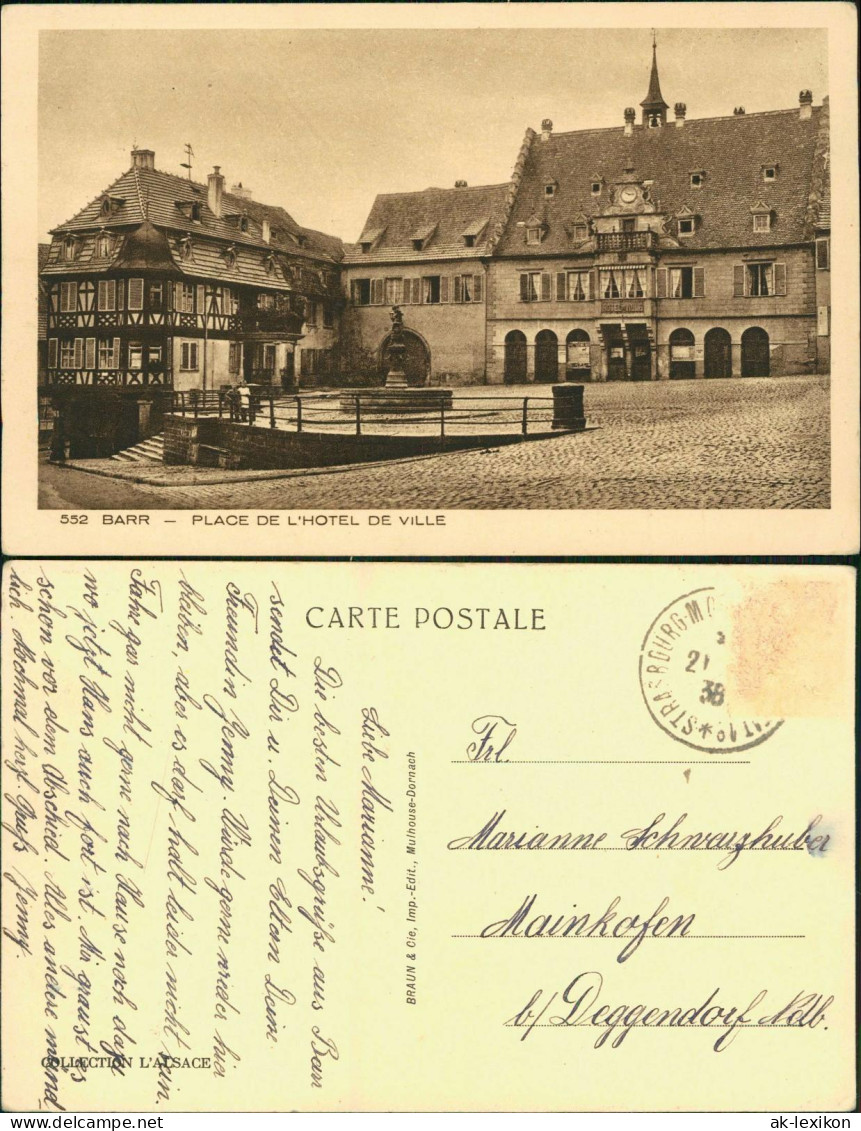 552 BARR – PLACE DE L'HOTEL DE VILLE
CARTE POSTALE
Liebe Marianne!
Die besten Urlaubsgrüße aus Barr
sendet Dir u. Deinen Eltern Deine
Freundin Jenny. Würde gerne wieder hier
bleiben, aber es darf halt leider nicht sein.
Fahre gar nicht gerne nach Hause noch dazu
wo jetzt Hans auch fort ist. Mir graust es
schon vor dem Abschied. Alles andere münd-
lich. Nochmal herzl. Gruß Jenny.
COLLECTION L'ALSACE
BRAUN & Cie, Imp.-Edit., Mulhouse-Dornach
21
38
Frl.
Marianne Schwarzhuber
Mainkofen
b/ Deggendorf Ndb.
ak-lexikon